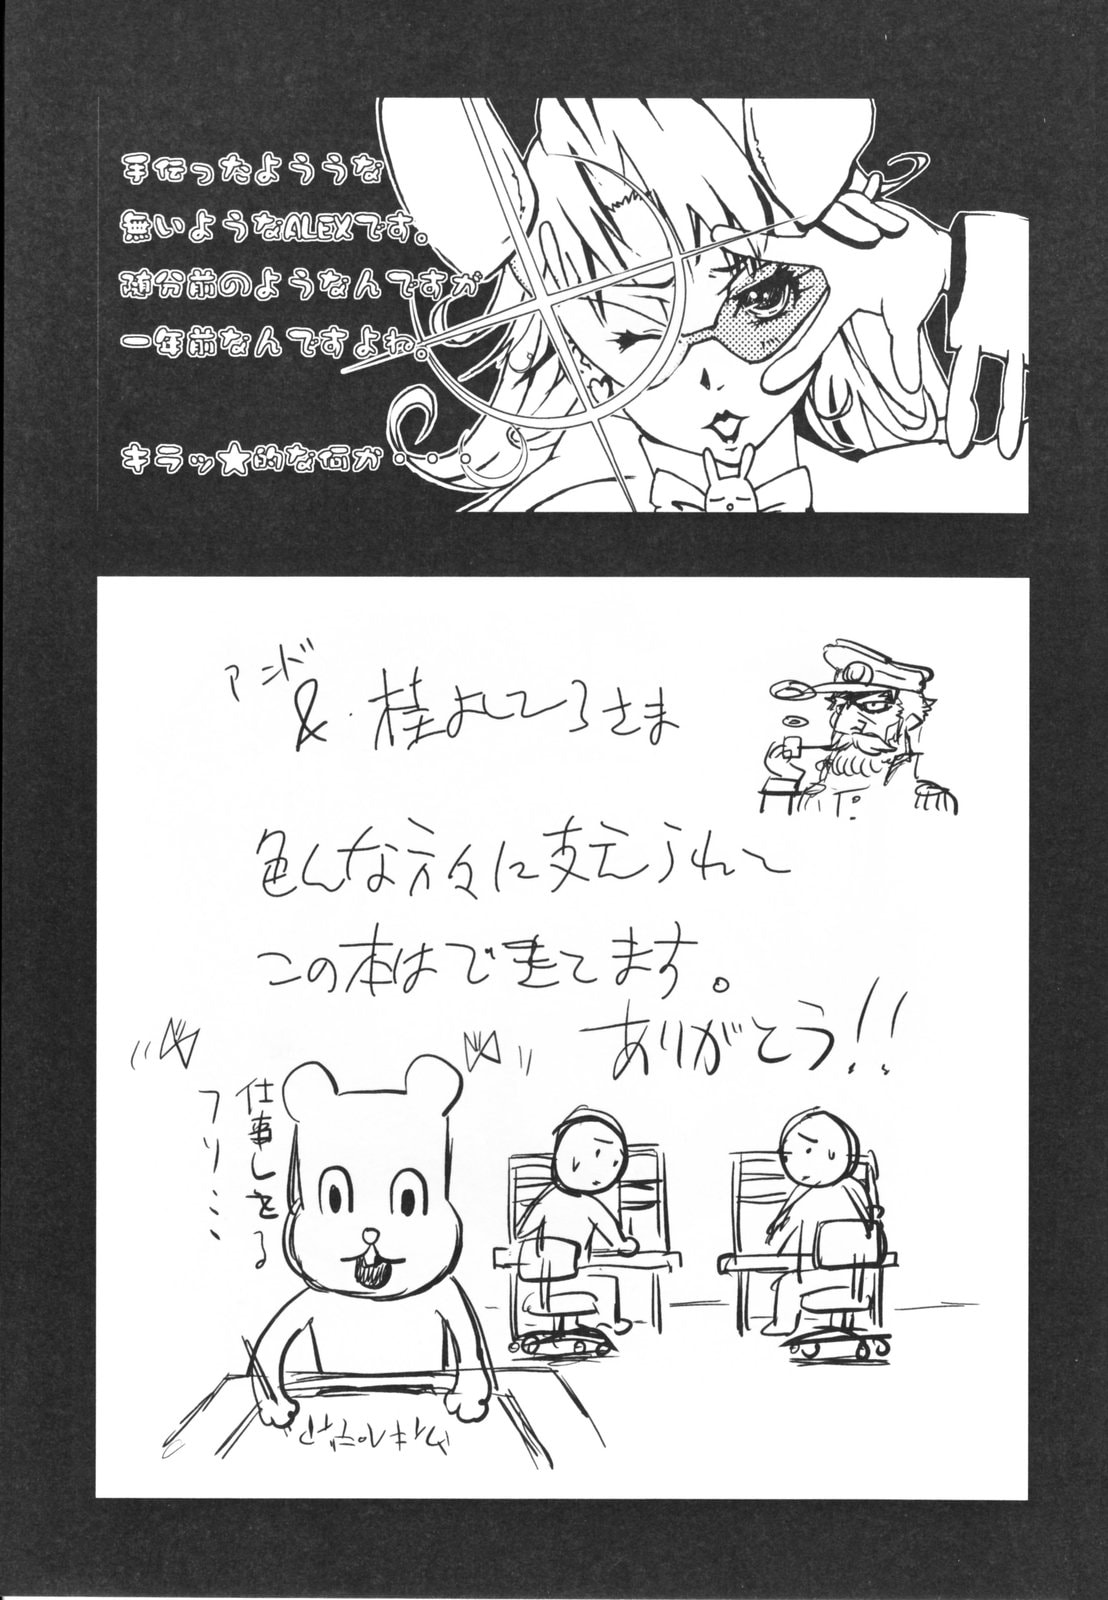 手伝ったよううな
無いようなALEXです。
随分前のようなんですが
一年前なんですよね。
キラッ★的な何か・・・
アンド
&.桂よしひろさま
色んな方々に支えられて
この本はできてます。
ありがとう!!
仕事しとる
フリ…